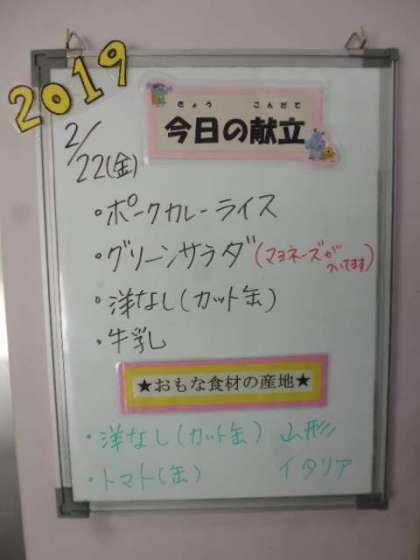 2019
きょう こんだて
今日の献立
2/22(金)
・ポークカレーライス
・グリーンサラダ(マヨネーズがついてます)
・洋なし(カット缶)
・牛乳
★おもな食材の産地★
・洋なし(カット缶) 山形
・トマト(缶) イタリア